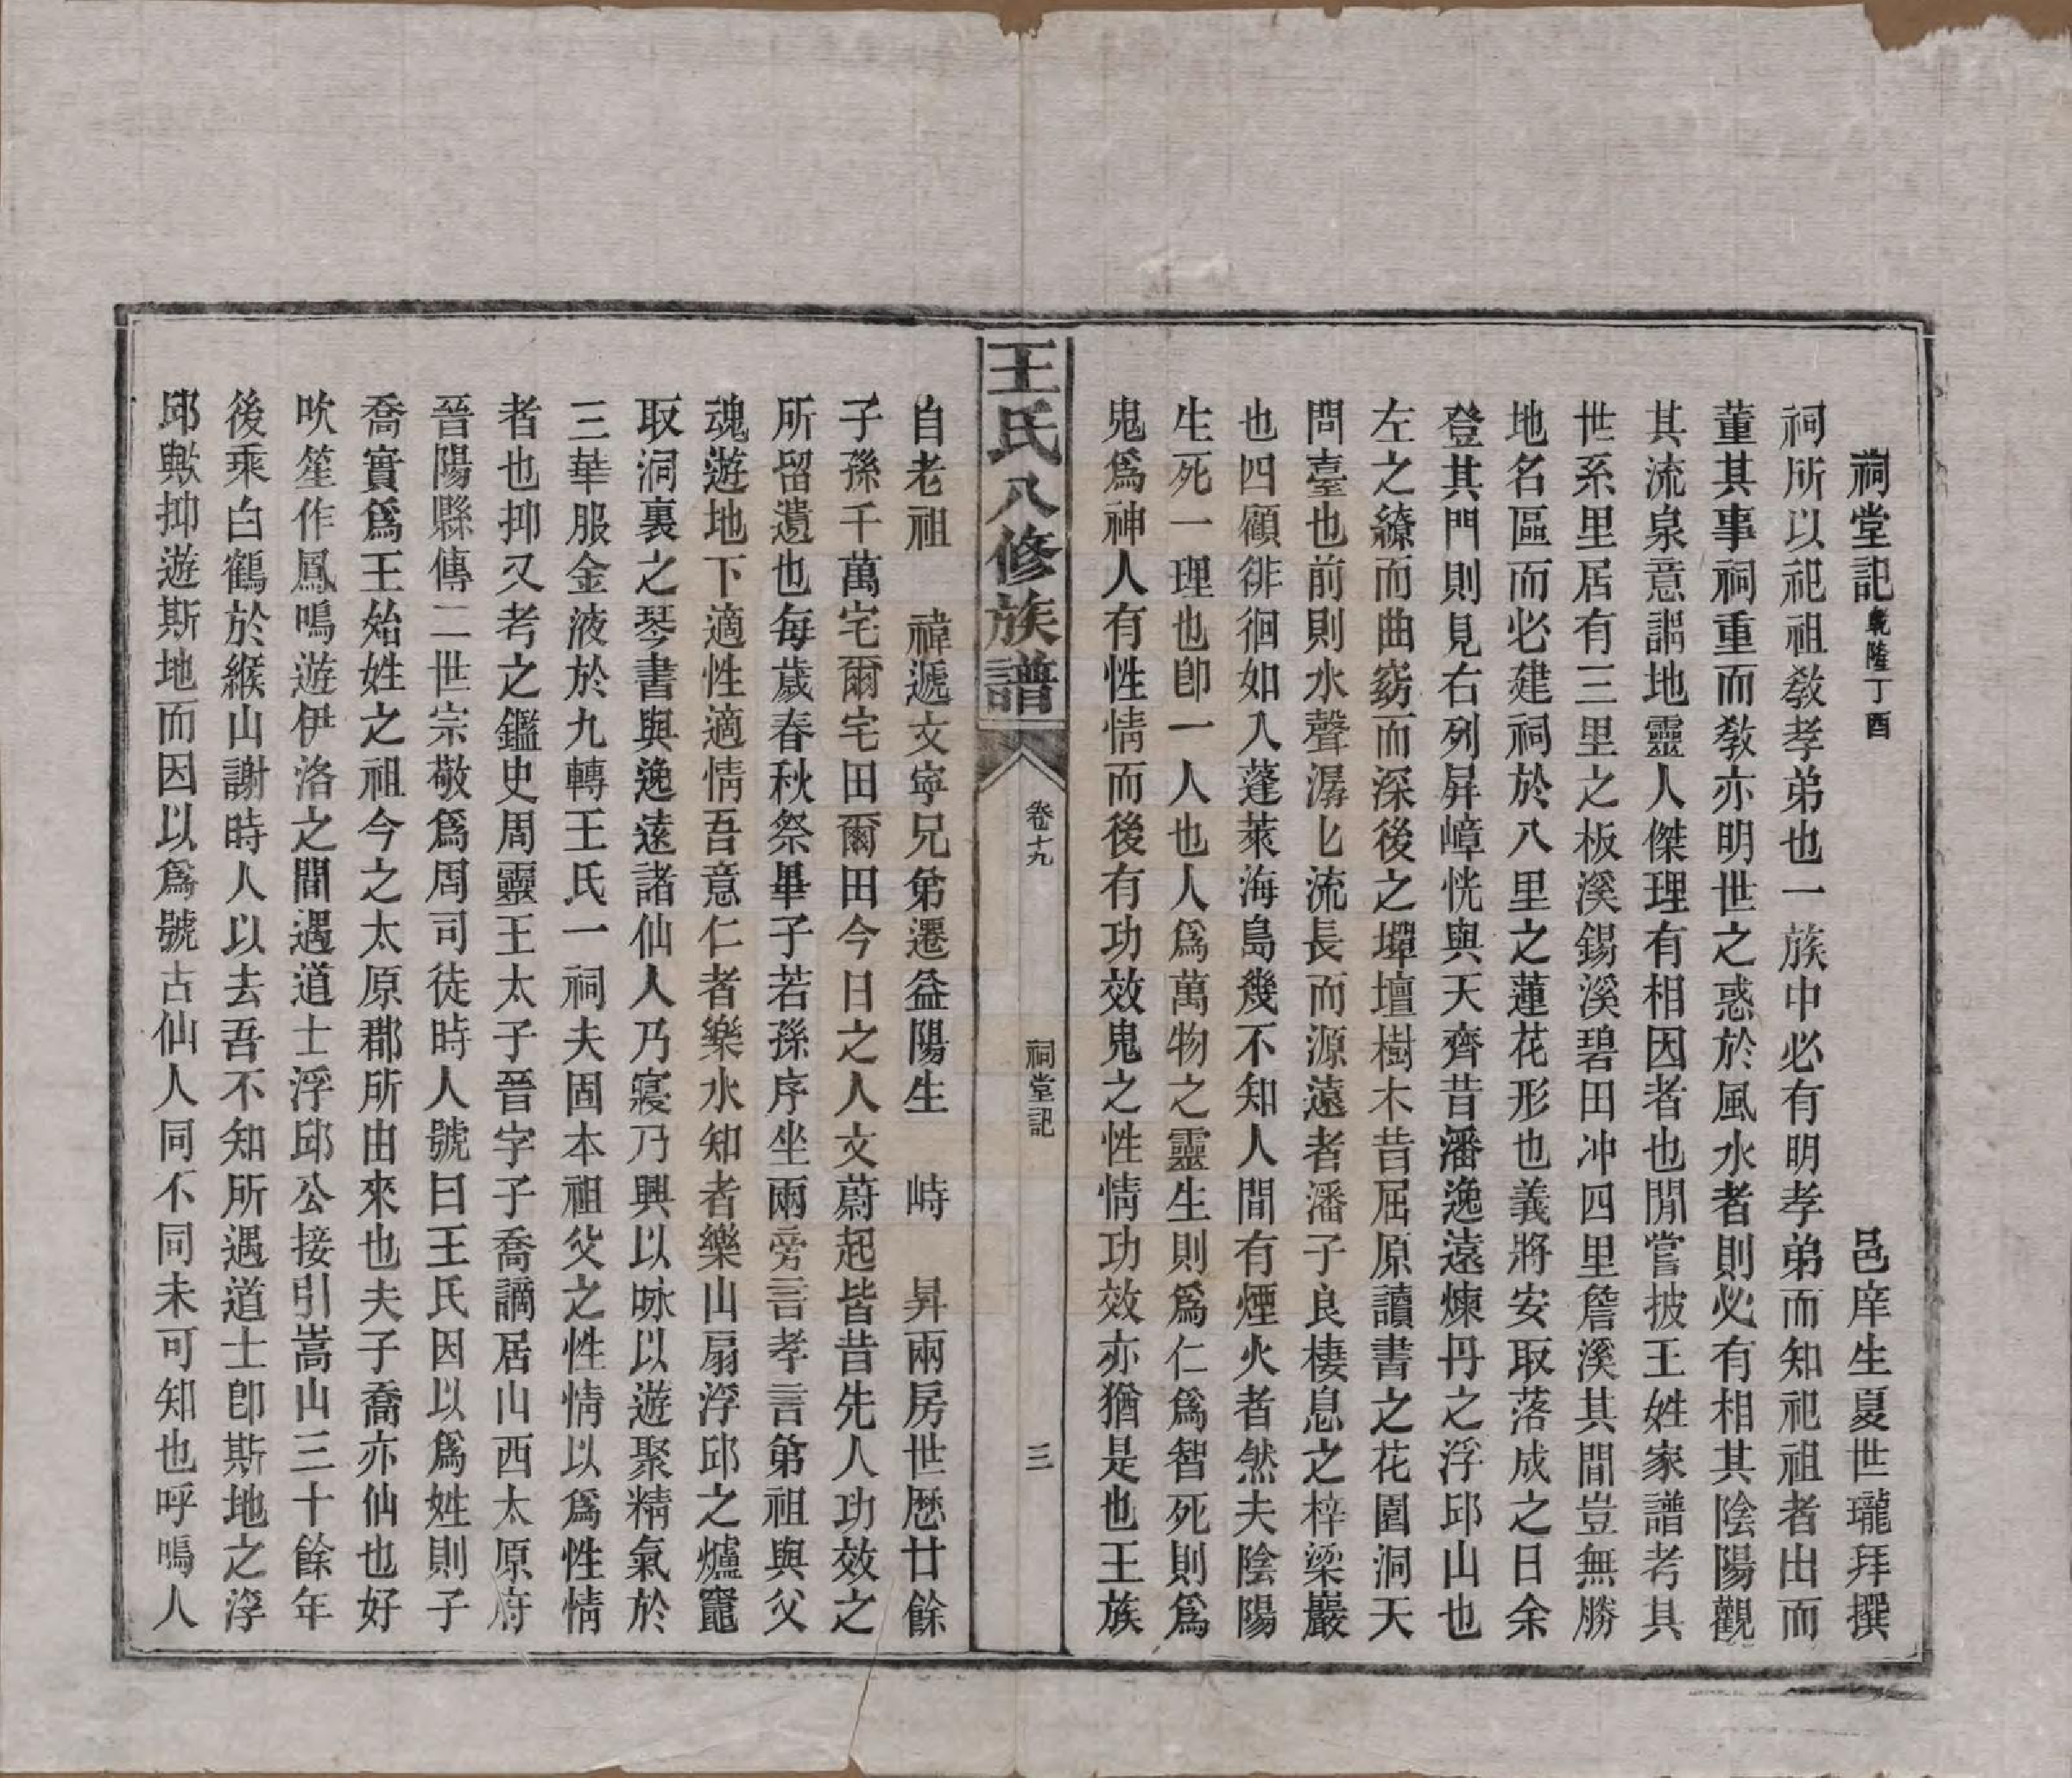 祠堂記乾隆丁酉 邑庠生夏世瓏拜撰
祠所以祀祖敎孝弟也一族中必有明孝弟而知祀祖者出而
董其事祠重而敎亦明世之惑於風水者則必有相其陰陽觀
其流泉意謂地靈人傑理有相因者也閒嘗披王姓家譜考其
世系里居有三里之板溪錫溪碧田冲四里詹溪其間豈無勝
地名區而必建祠於八里之蓮花形也義將安取落成之日余
登其門則見右列屛嶂恍與天齊昔潘逸遠煉丹之浮邱山也
左之繚而曲窈而深後之墠壇樹木昔屈原讀書之花園洞天
問臺也前則水聲潺匕流長而源遠者潘子良棲息之梓梁巖
也四顧徘徊如入蓬萊海島幾不知人間有煙火者然夫陰陽
生死一理也卽一人也人爲萬物之靈生則爲仁爲智死則爲
鬼爲神人有性情而後有功效鬼之性情功效亦猶是也王族
王氏八修族譜 卷十九 祠堂記 三
自老祖 禕遞文寜兄弟遷益陽生 峙 昇兩房世歷廿餘
子孫千萬宅爾宅田爾田今日之人文蔚起皆昔先人功效之
所留遺也每歲春秋祭畢子若孫序坐兩旁言孝言弟祖與父
魂遊地下適性適情吾意仁者樂水知者樂山扇浮邱之爐竈
取洞裏之琴書與逸遠諸仙人乃寢乃興以咏以遊聚精氣於
三華服金液於九轉王氏一祠夫固本祖父之性情以爲性情
者也抑又考之鑑史周靈王太子晉字子喬謫居山西太原府
晉陽縣傳二世宗敬爲周司徒時人號曰王氏因以爲姓則子
喬實爲王始姓之祖今之太原郡所由來也夫子喬亦仙也好
吹笙作鳳鳴遊伊洛之間遇道士浮邱公接引嵩山三十餘年
後乘白鶴於緱山謝時人以去吾不知所遇道士卽斯地之浮
邱歟抑遊斯地而因以爲號古仙人同不同未可知也呼嗚人